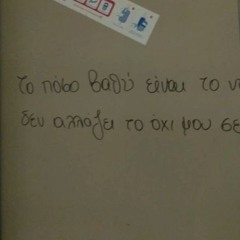 Το πόσο βαθύ είναι το ν
δεν αλλαζει το όχι μου σε